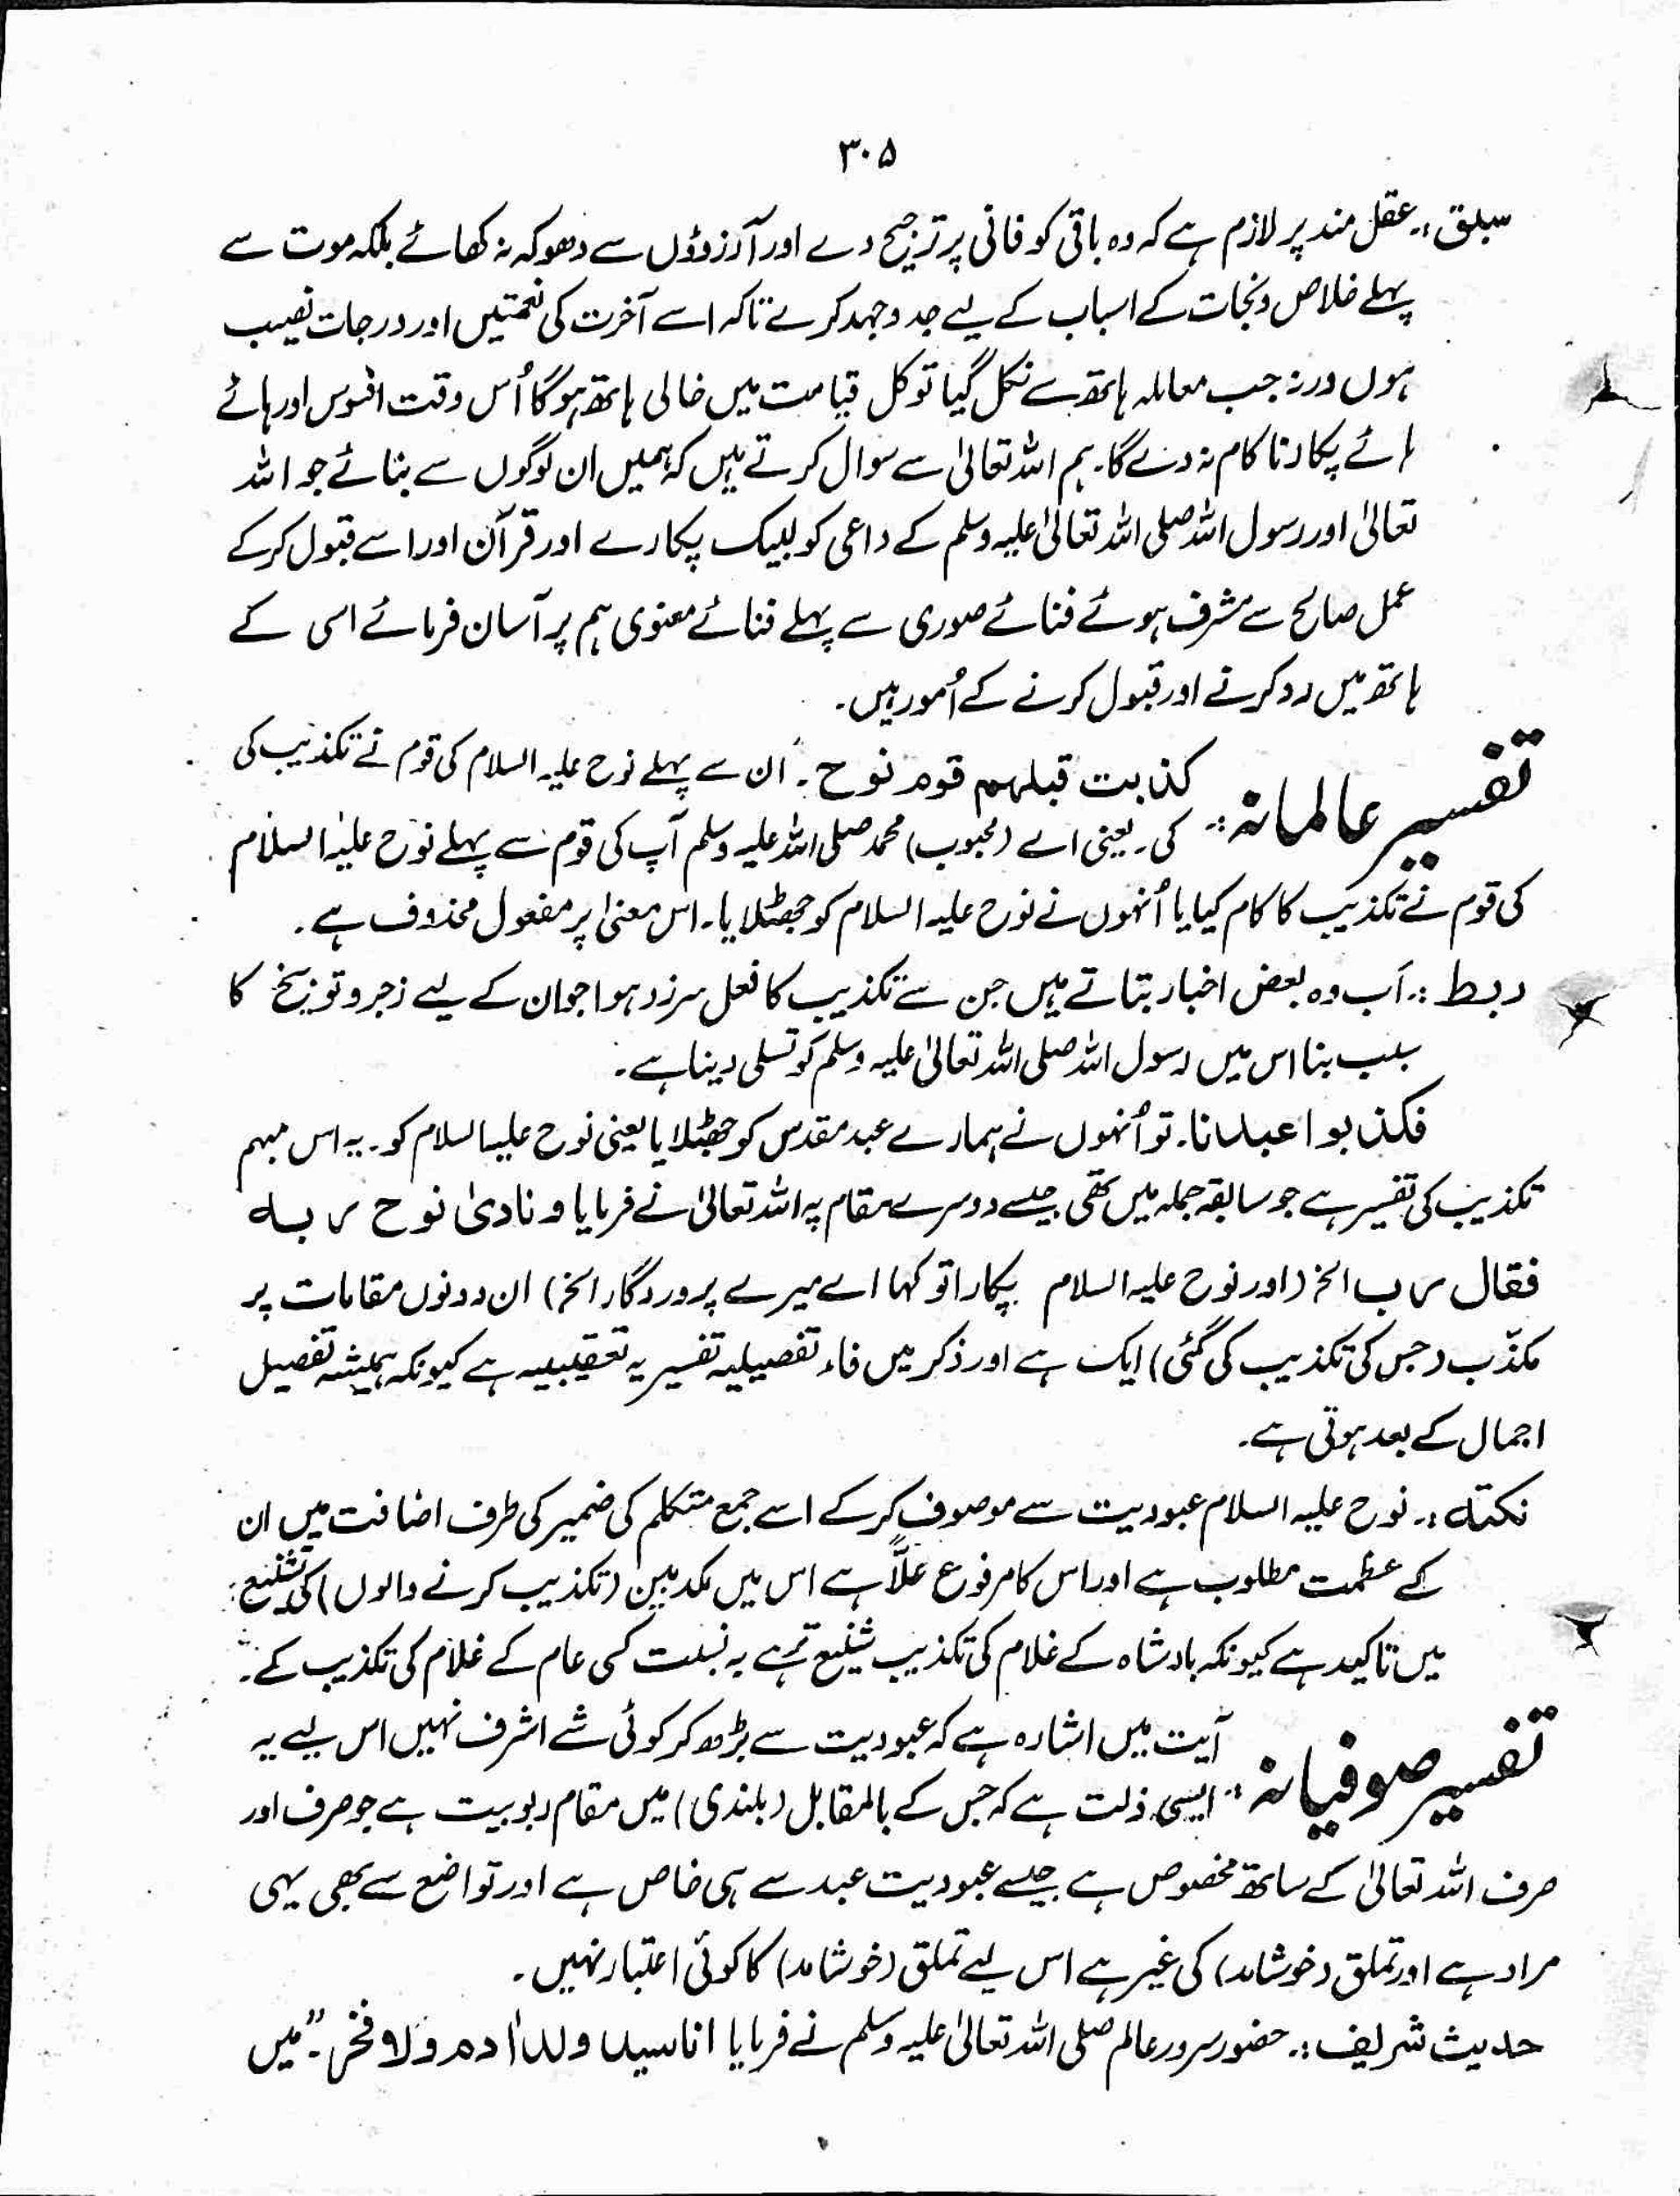 ۳۰۵
سبق:۔ عقل مند پر لازم ہے کہ وہ باقی کو فانی پر ترجیح دے اور آرزوؤں سے دھوکہ نہ کھائے بلکہ موت سے
پہلے خلاص و نجات کے اسباب کے لیے جد و جہد کرے تاکہ اسے آخرت کی نعمتیں اور درجات نصیب
ہوں ورنہ جب معاملہ ہاتھ سے نکل گیا تو کل قیامت میں خالی ہاتھ ہوگا اُس وقت افسوس اور ہائے
ہائے پکارنا کام نہ دے گا۔ ہم اللہ تعالیٰ سے سوال کرتے ہیں کہ ہمیں ان لوگوں سے بنائے جو اللہ
تعالیٰ اور رسول اللہ صلی اللہ تعالیٰ علیہ وسلم کے داعی کو لبیک پکارے اور قرآن اور اسے قبول کرکے
عمل صالح سے مشرف ہوئے فنائے صوری سے پہلے فنائے معنوی ہم پر آسان فرمائے اسی کے
ہاتھ میں رد کرنے اور قبول کرنے کے اُمور ہیں۔
تفسیر عالمانہ:۔ کذبت قبلہم قوم نوح۔ اُن سے پہلے نوح علیہ السلام کی قوم نے تکذیب کی
کی۔ یعنی اے (محبوب) محمد صلی اللہ علیہ وسلم آپ کی قوم سے پہلے نوح علیہ السلام
کی قوم نے تکذیب کا کام کیا یا اُنہوں نے نوح علیہ السلام کو جھٹلایا۔ اس معنیٰ پر مفعول محذوف ہے۔
ربط:۔ اَب وہ بعض اخبار بتاتے ہیں جن سے تکذیب کا فعل سرزد ہوا جو ان کے لیے زجر و توزیخ کا
سبب بنا اس میں رسول اللہ صلی اللہ تعالیٰ علیہ وسلم کو تسلی دینا ہے۔
فکذبوا عبدنا۔ تو اُنہوں نے ہمارے عبد مقدس کو جھٹلایا یعنی نوح علیہ السلام کو۔ یہ اس مبہم
تکذیب کی تفسیر ہے جو سابقہ جملہ میں تھی جیسے دوسرے مقام پہ اللہ تعالیٰ نے فرمایا و نادیٰ نوح ربہ
فقال رب الخ (اور نوح علیہ السلام پکارا تو کہا اے میرے پروردگار الخ) ان دونوں مقامات پر
مکذّب (جس کی تکذیب کی گئی) ایک ہے اور ذکر میں فاء تفصیلیہ تفسیریہ تعقیبیہ ہے کیونکہ ہمیشہ تفصیل
اجمال کے بعد ہوتی ہے۔
نکتہ:۔ نوح علیہ السلام عبودیت سے موصوف کرکے اسے جمع متکلم کی ضمیر کی طرف اضافت میں ان
کے عظمت مطلوب ہے اور اس کا مرفوع علاًّ ہے اس میں مکذبین (تکذیب کرنے والوں) کی تشنیع
میں تاکید ہے کیونکہ بادشاہ کے غلام کی تکذیب شنیع تر ہے بہ نسبت کسی عام کے غلام کی تکذیب کے۔
تفسیر صوفیانہ:۔ آیت میں اشارہ ہے کہ عبودیت سے بڑھ کر کوئی شے اشرف نہیں اس لیے یہ
ایسی ذلت ہے کہ جس کے بالمقابل (بلندی) میں مقام ربوبیت ہے جو صرف اور
صرف اللہ تعالیٰ کے ساتھ مخصوص ہے جیسے عبودیت عبد سے ہی خاص ہے اور تواضع سے بھی یہی
مراد ہے اور تملق (خوشامد) کی غیر ہے اس لیے تملق (خوشامد) کا کوئی اعتبار نہیں۔
حدیث شریف:۔ حضور سرور عالم صلی اللہ تعالیٰ علیہ وسلم نے فرمایا انا سید ولد اٰدم ولا فخر۔" میں